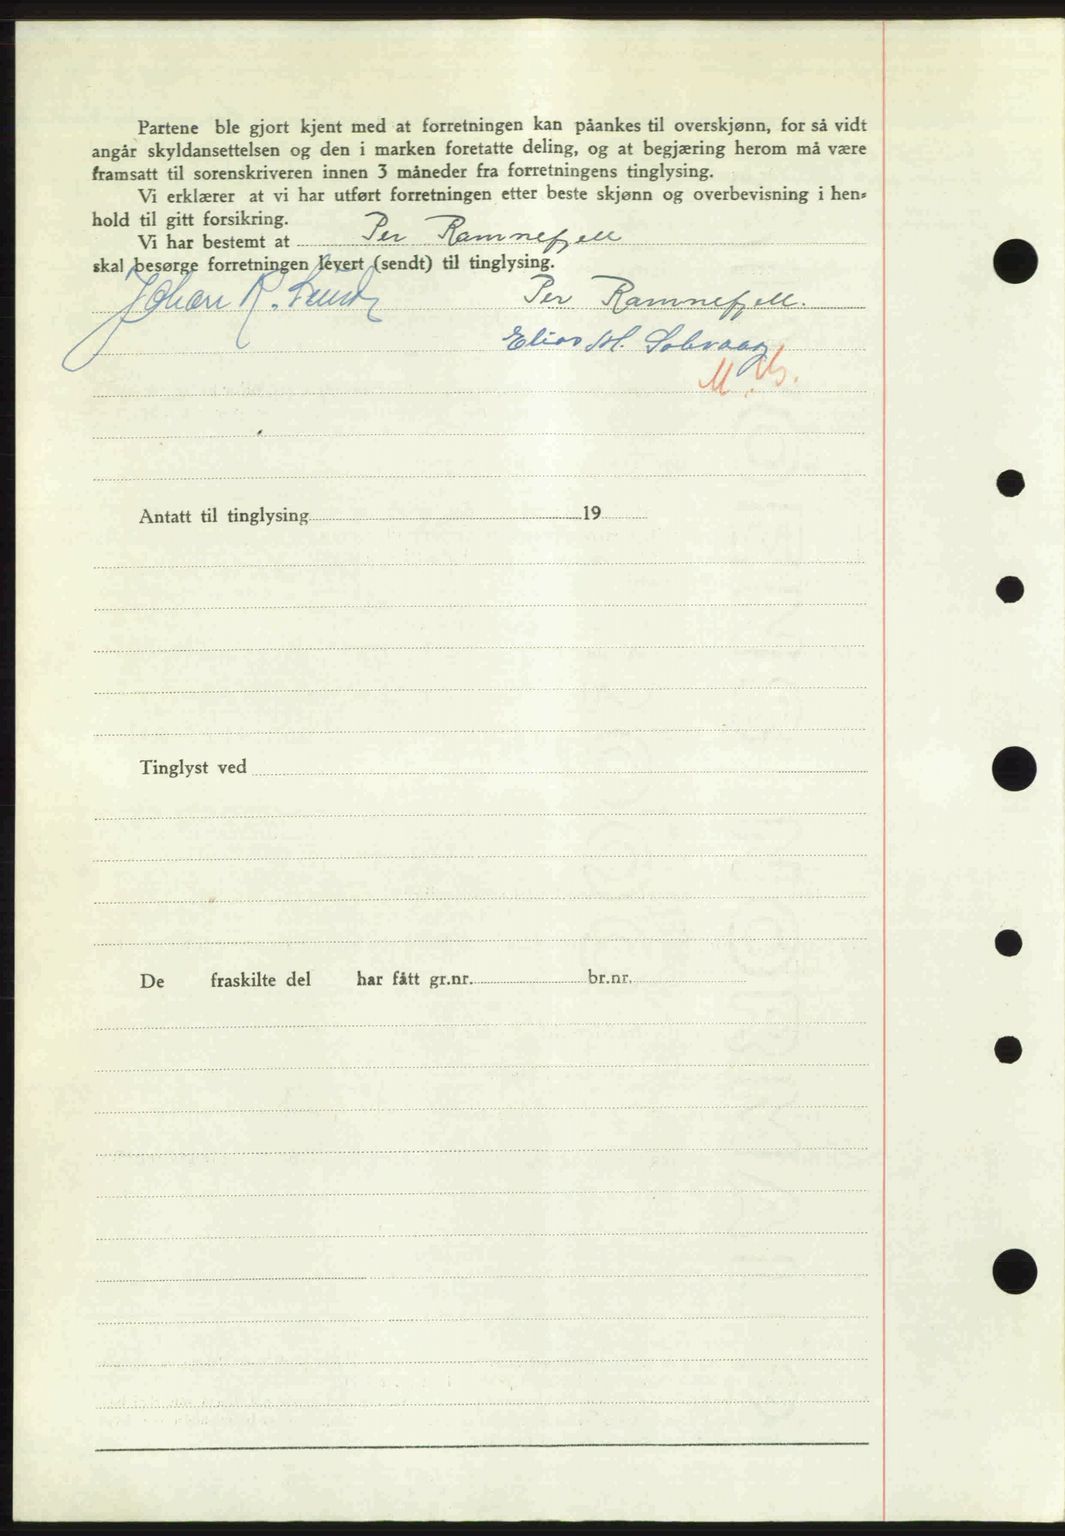 Partene ble gjort kjent med at forretningen kan påankes til overskjønn, for så vidt
angår skyldansettelsen og den i marken foretatte deling, og at begjæring herom må være
framsatt til sorenskriveren innen 3 måneder fra forretningens tinglysing.
Vi erklærer at vi har utført forretningen etter beste skjønn og overbevisning i hen-
hold til gitt forsikring.
Vi har bestemt at Per Ramnefjell
skal besørge forretningen levert (sendt) til tinglysing.
Johan R. Per Ramnefjell.
Elias M. Solvaag
Antatt til tinglysing 19
Tinglyst ved
De fraskilte del har fått gr.nr. br.nr.